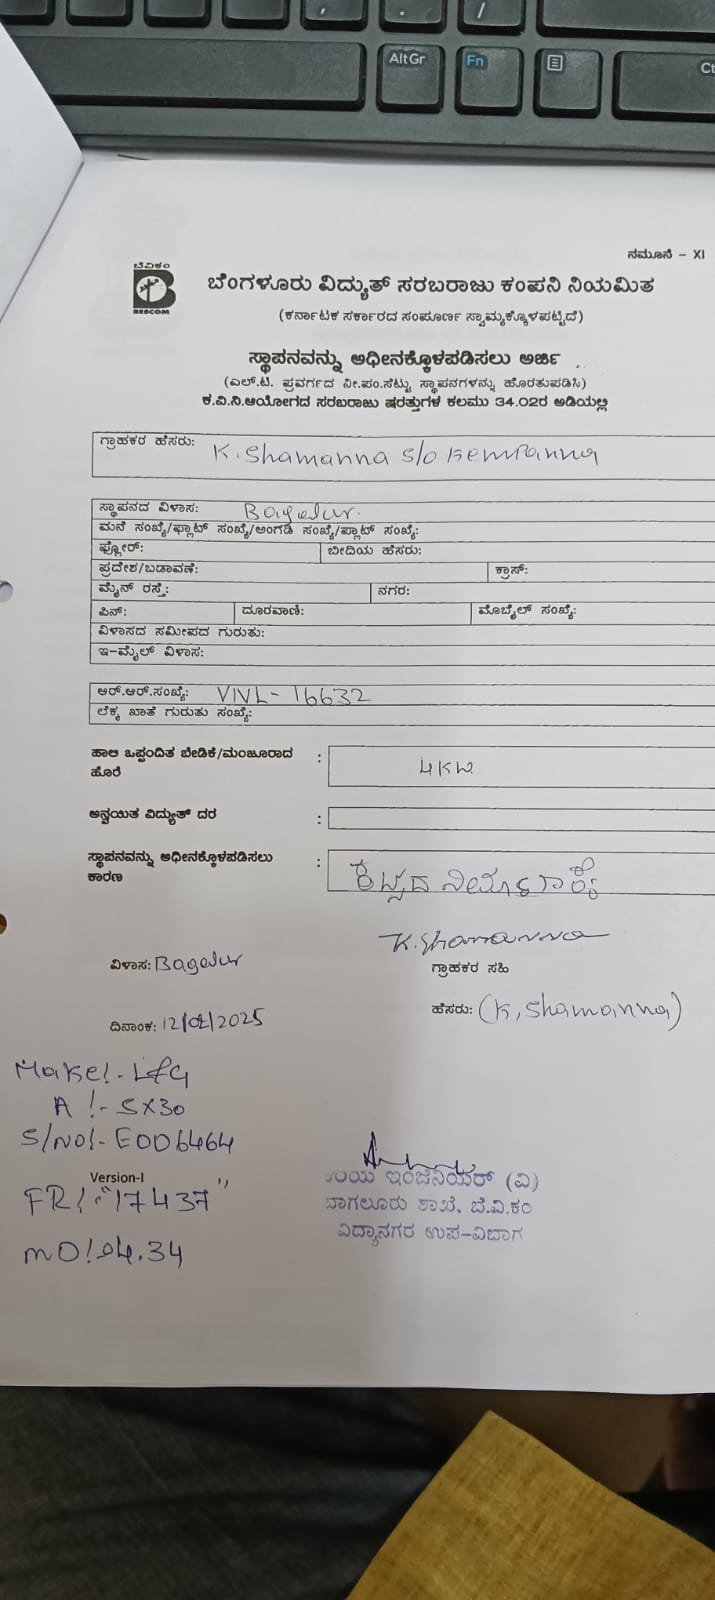 , . /
AltGr Fn Ct
ನಮೂನೆ – XI
ಬೆವಿಕಂ
BESCOM
ಬೆಂಗಳೂರು ವಿದ್ಯುತ್ ಸರಬರಾಜು ಕಂಪನಿ ನಿಯಮಿತ
(ಕರ್ನಾಟಕ ಸರ್ಕಾರದ ಸಂಪೂರ್ಣ ಸ್ವಾಮ್ಯಕ್ಕೊಳಪಟ್ಟಿದೆ)
ಸ್ಥಾಪನವನ್ನು ಅಧೀನಕ್ಕೊಳಪಡಿಸಲು ಅರ್ಜಿ
(ಎಲ್.ಟಿ. ಪ್ರವರ್ಗದ ನೀ.ಪಂ.ಸೆಟ್ಟು ಸ್ಥಾಪನಗಳನ್ನು ಹೊರತುಪಡಿಸಿ)
ಕ.ವಿ.ನಿ.ಆಯೋಗದ ಸರಬರಾಜು ಷರತ್ತುಗಳ ಕಲಮು 34.02ರ ಅಡಿಯಲ್ಲಿ
ಗ್ರಾಹಕರ ಹೆಸರು: K. Shamanna S/o Kempanna
ಸ್ಥಾಪನದ ವಿಳಾಸ: Bagalur.
ಮನೆ ಸಂಖ್ಯೆ/ಫ್ಲಾಟ್ ಸಂಖ್ಯೆ/ಅಂಗಡಿ ಸಂಖ್ಯೆ/ಪ್ಲಾಟ್ ಸಂಖ್ಯೆ:
ಫ್ಲೋರ್: ಬೀದಿಯ ಹೆಸರು:
ಪ್ರದೇಶ/ಬಡಾವಣೆ: ಕ್ರಾಸ್:
ಮೈನ್ ರಸ್ತೆ: ನಗರ:
ಪಿನ್: ದೂರವಾಣಿ: ಮೊಬೈಲ್ ಸಂಖ್ಯೆ:
ವಿಳಾಸದ ಸಮೀಪದ ಗುರುತು:
ಇ-ಮೈಲ್ ವಿಳಾಸ:
ಆರ್.ಆರ್.ಸಂಖ್ಯೆ: VNL- 16632
ಲೆಕ್ಕ ಖಾತೆ ಗುರುತು ಸಂಖ್ಯೆ:
ಹಾಲಿ ಒಪ್ಪಂದಿತ ಬೇಡಿಕೆ/ಮಂಜೂರಾದ
ಹೊರೆ : 4KW
ಅನ್ವಯಿತ ವಿದ್ಯುತ್ ದರ :
ಸ್ಥಾಪನವನ್ನು ಅಧೀನಕ್ಕೊಳಪಡಿಸಲು
ಕಾರಣ : ಕಟ್ಟಡ
K. Shamanna
ವಿಳಾಸ: Bagalur ಗ್ರಾಹಕರ ಸಹಿ
ಹೆಸರು: (K, Shamanna)
ದಿನಾಂಕ: 12/02/2025
Make:- L&G
A :- 5X30
S/No:- E006464
Version-I
FR:- "17437"
MD:- 04.34
ಇಂಜಿನಿಯರ್ (ವಿ)
ಬಾಗಲೂರು ಶಾಖೆ, ಬೆ.ವಿ.ಕಂ
ವಿದ್ಯಾನಗರ ಉಪ-ವಿಭಾಗ